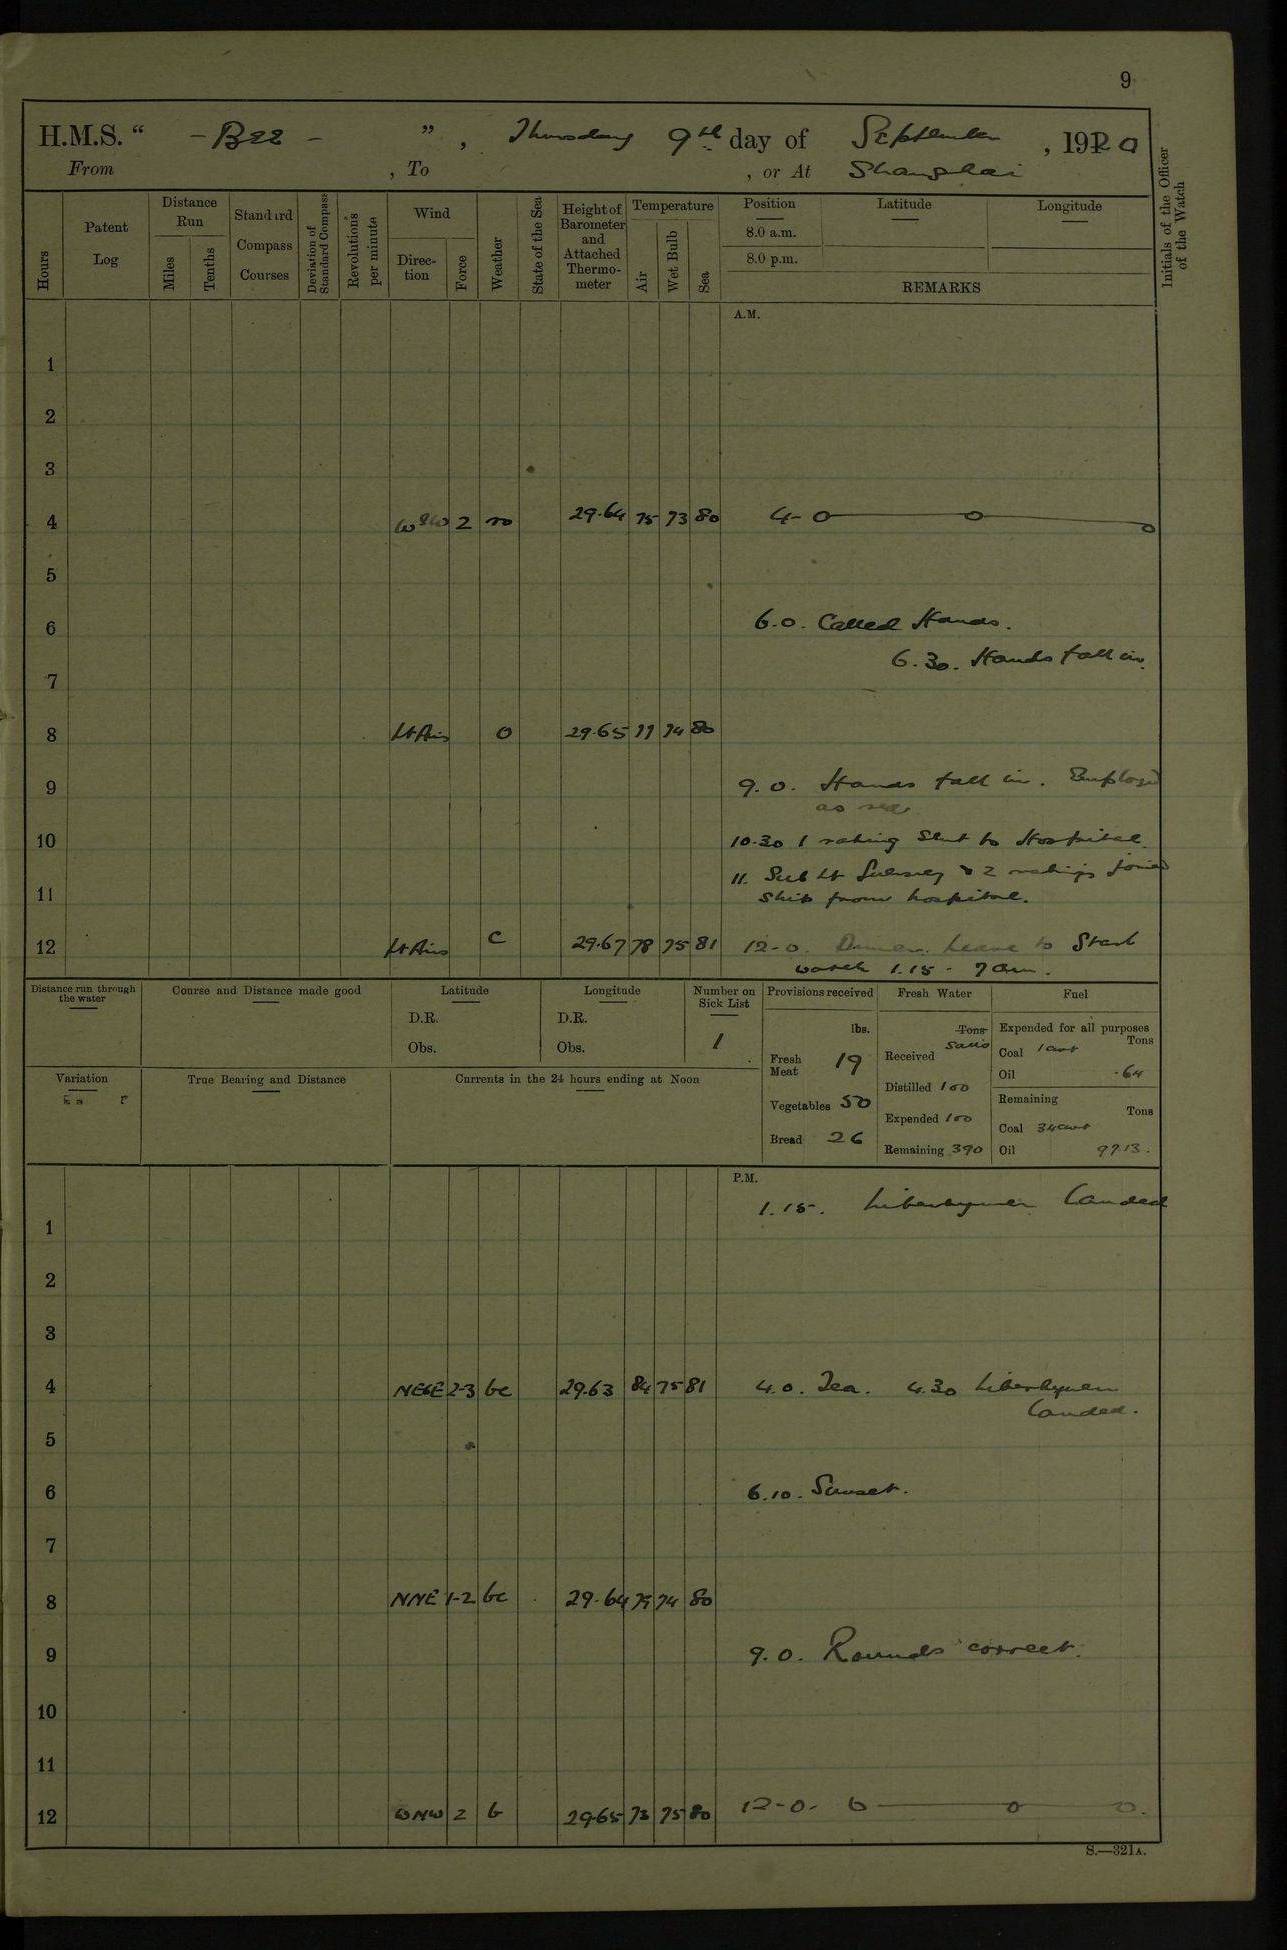 9
H.M.S. “ - Bee - ” , Thursday 9th day of September , 1920
From , To , or At Shanghai
Hours
Patent Log
Distance Run
Miles
Tenths
Standard Compass Courses
Deviation of Standard Compass
Revolutions per minute
Wind
Direction
Force
Weather
State of the Sea
Height of Barometer and Attached Thermometer
Temperature
Air
Wet Bulb
Sea
Position
8.0 a.m.
8.0 p.m.
Latitude
Longitude
REMARKS
Initials of the Officer of the Watch
A.M.
1
2
3
4 2 29.64 75 73 80 4-0
5
6 6.0. Called Hands.
6.30. Hands fall in.
7
8 Lt Airs o 29.65 77 74 80
9 9.0. Hands fall in. Employed
as req
10 10.30 1 rating sent to Hospital.
11. Sub Lt & 2 ratings joined
11 ship from hospital.
12 Lt Airs c 29.67 78 75 81 12-0. Dinner. Leave to Starb
watch 1.15 - 7 am.
Distance run through the water
Course and Distance made good
Latitude
D.R.
Obs.
Longitude
D.R.
Obs.
Number on Sick List
1
Provisions received
lbs.
Fresh Meat 19
Vegetables 50
Bread 26
Fresh Water
Tons
Galls
Received
Distilled 100
Expended 100
Remaining 390
Fuel
Expended for all purposes
Tons
Coal 1 cwt
Oil .64
Remaining
Tons
Coal 34 cwt
Oil 97.13.
Variation
True Bearing and Distance
Currents in the 24 hours ending at Noon
P.M.
1.15. Libertymen landed
1
2
3
4 NEbE 2-3 bc 29.63 84 75 81 4.0. Tea. 4.30 Libertymen
landed.
5
6 6.10. Sunset.
7
8 NNE 1-2 bc 29.64 75 74 80
9 9.0. Rounds correct.
10
11
12 WNW 2 b 29.65 73 75 80 12-0-
S.—321A.